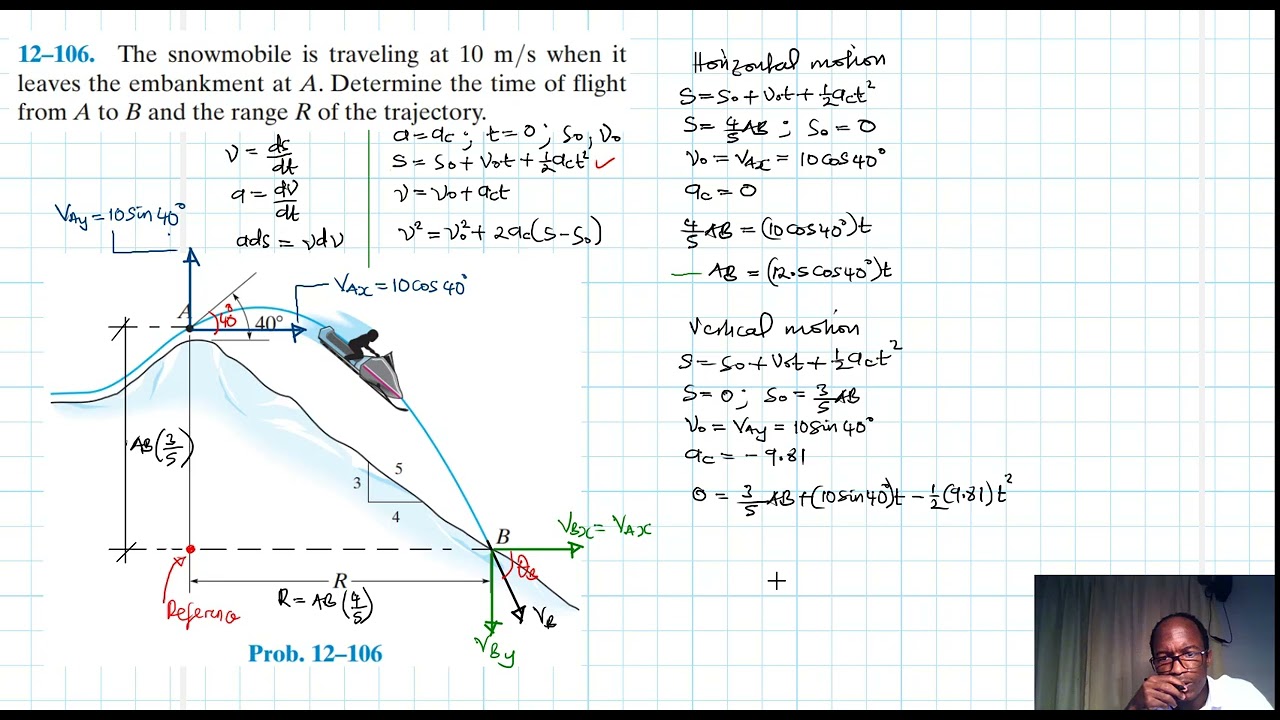 12–106. The snowmobile is traveling at 10 m/s when it
leaves the embankment at A. Determine the time of flight
from A to B and the range R of the trajectory.
v = ds/dt
a = dv/dt
ads = vdv
a = ac ; t = 0 ; s0, v0
s = s0 + v0t + 1/2 act² ✓
v = v0 + act
v² = v0² + 2ac(s – s0)
VAy = 10sin40°
VAx = 10cos40°
A
40°
40°
AB(3/5)
5
3
4
B
VBx = VAx
θB
R
R = AB(4/5)
Reference
VB
VBy
Prob. 12–106
Horizontal motion
s = s0 + v0t + 1/2 act²
s = 4/5 AB ; s0 = 0
v0 = VAx = 10cos40°
ac = 0
4/5 AB = (10cos40°)t
AB = (12.5cos40°)t
Vertical motion
s = s0 + v0t + 1/2 act²
s = 0 ; s0 = 3/5 AB
v0 = VAy = 10sin40°
ac = – 9.81
0 = 3/5 AB + (10sin40°)t – 1/2 (9.81)t²